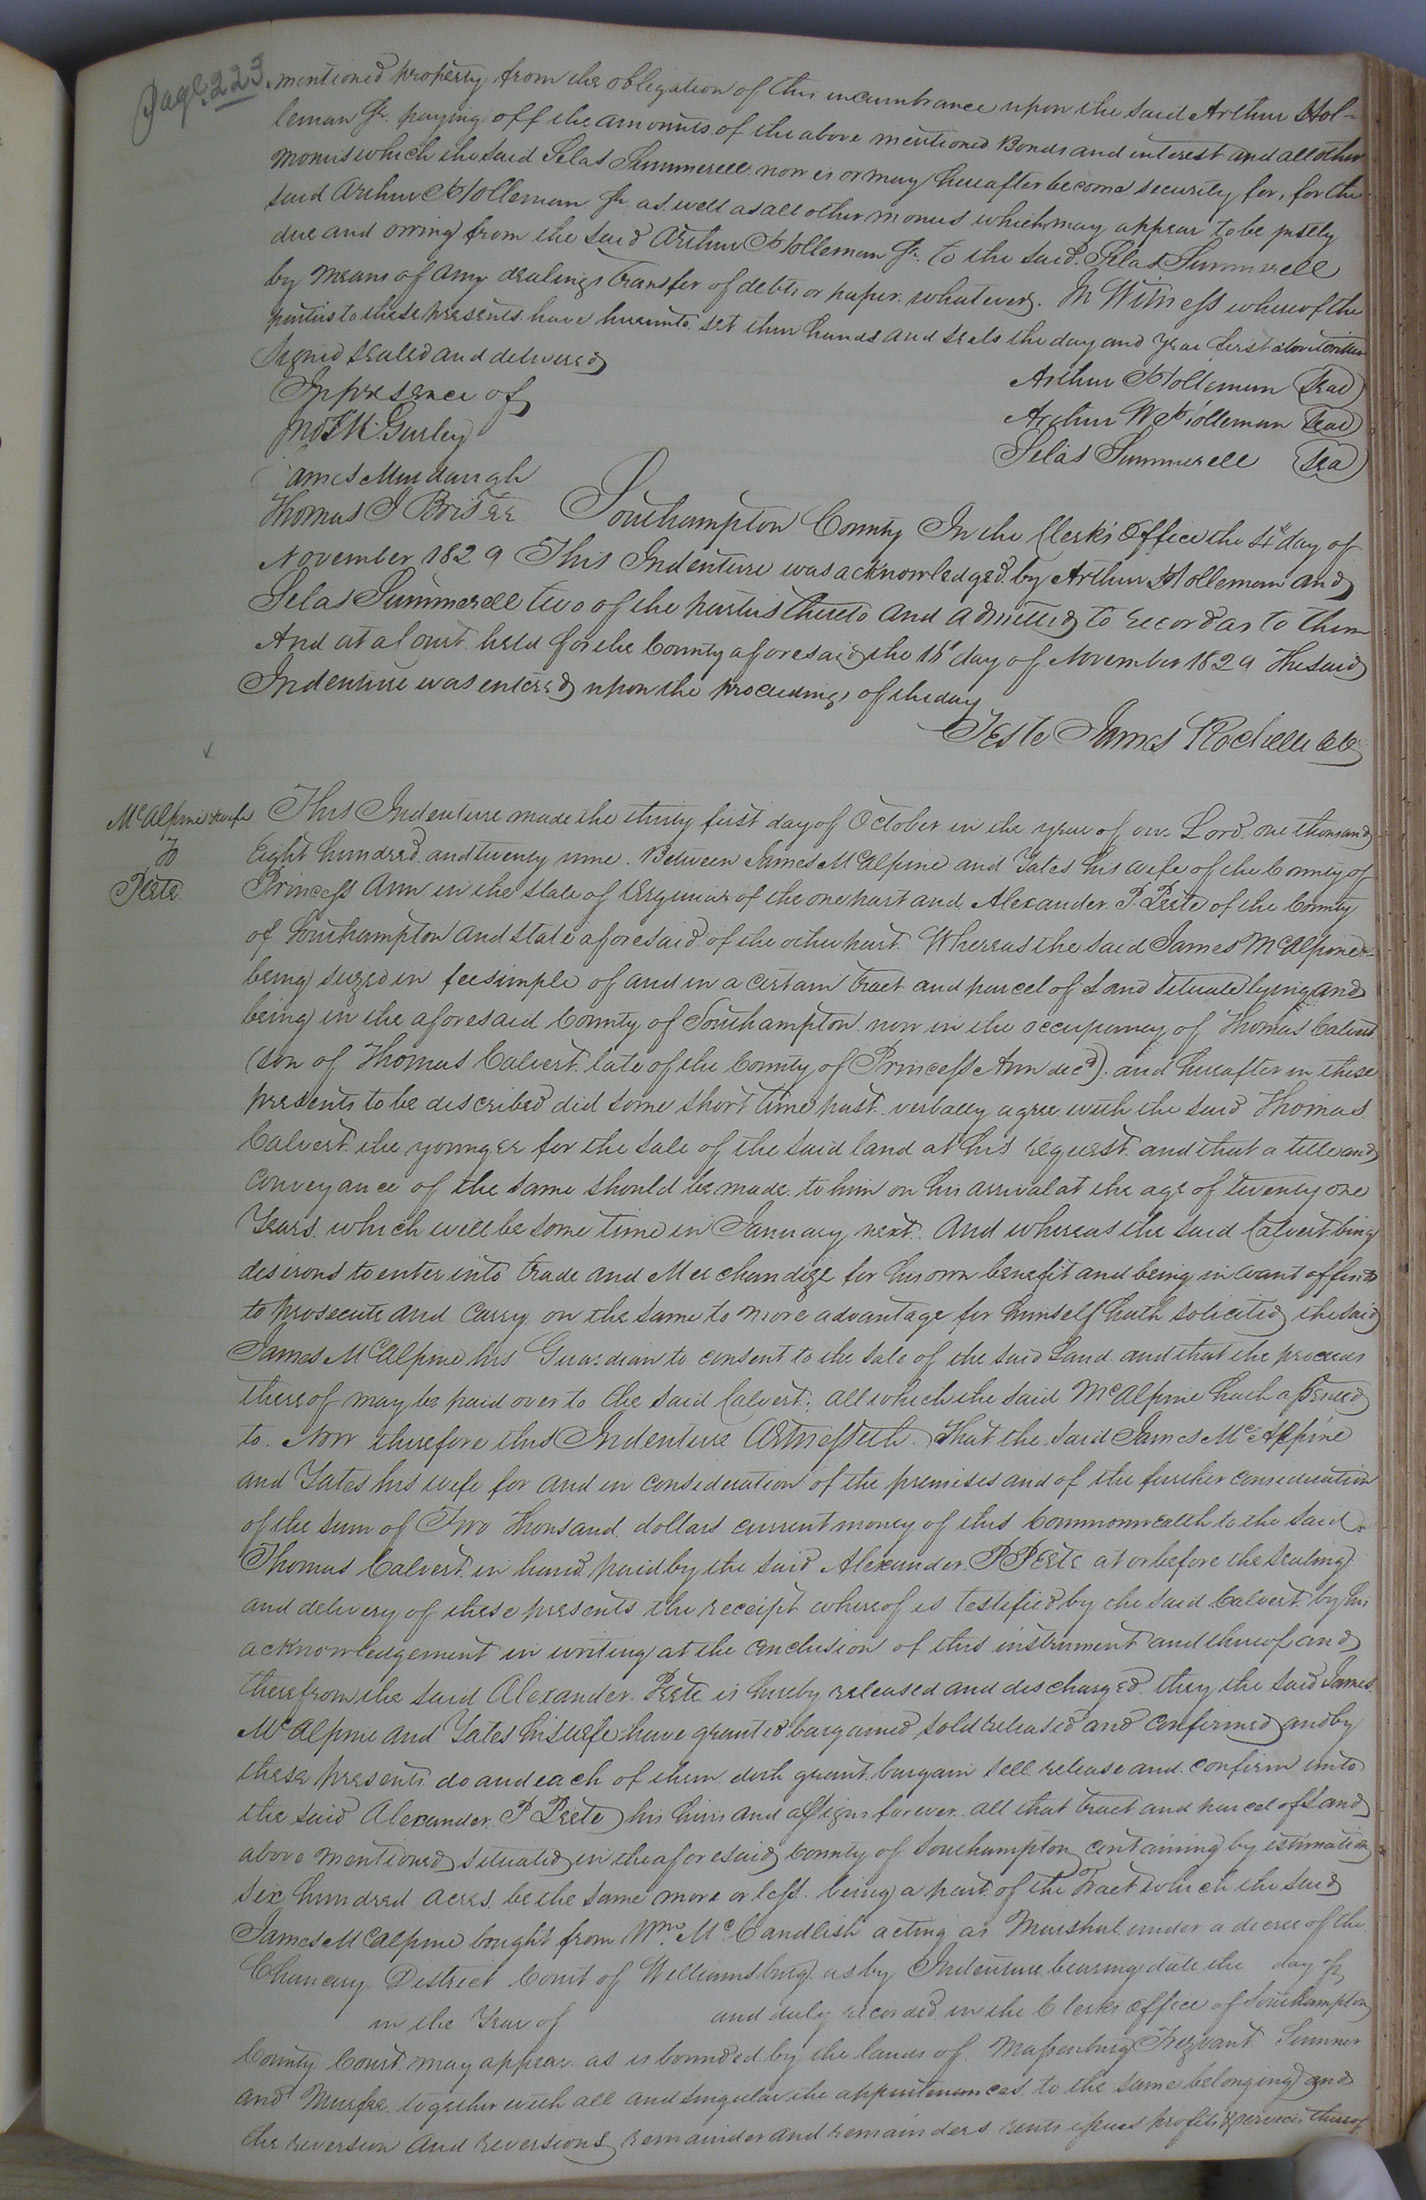 Page 223. mentioned property from the obligation of this incumbrance upon the said Arthur Hol-
leman Jr. paying off the amounts of the above mentioned Bonds and interest and all other
monies which the said Silas Summerell now is or may hereafter become security for, for the
said Arthur Holleman Jr. as well as all other monies which may appear to be justly
due and owing from the said Arthur Holleman Jr. to the said Silas Summerell
by means of any dealings transfer of debts or paper whatever. In Witness whereof the
parties to these presents have hereunto set their hands and seals the day and year first above written
Signed sealed and delivered
In presence of
Arthur Holleman (Seal)
Arthur W Holleman (Seal)
Silas Summerell (Sea)
Gurley
James Murdaugh
Thomas J
Southampton County In the Clerk's Office the 4th day of
November 1829 This Indenture was acknowledged by Arthur Holleman and
Silas Summerell two of the parties thereto and admitted to record as to them
And at a Court held for the County aforesaid the 16th day of November 1829 The said
Indenture was entered upon the proceedings of the day
Teste James Rochelle CC
McAlpine & wife
To
Peete
This Indenture made the thirty first day of October in the year of our Lord one thousand
Eight hundred and twenty nine Between James McAlpine and Yates his wife of the County of
Princess Ann in the state of Virginia of the one part and Alexander P. Peete of the County
of Southampton and State aforesaid of the other part. Whereas the said James McAlpine
being seized in fee simple of and in a certain tract and parcel of Land situate lying and
being in the aforesaid County of Southampton now in the occupancy of Thomas Calvert
(son of Thomas Calvert late of the County of Princess Ann decd.) and hereafter in these
presents to be discribed did some short time past verbally agree with the said Thomas
Calvert the younger for the sale of the said land at his request and that a title and
conveyance of the same should be made to him on his arrival at the age of twenty one
Years which will be some time in January next. And whereas the said Calvert being
desirous to enter into trade and Merchandize for his own benefit and being in want of funds
to prosecute and carry on the same to more advantage for himself hath solicited the said
James McAlpine his Guardian to consent to the sale of the said Land and that the proceeds
thereof may be paid over to the said Calvert; all which the said McAlpine hath assented
to. Now therefore this Indenture Witnesseth. That the said James McAlpine
and Yates his wife for and in consideration of the premises and of the further consideration
of the sum of Two thousand dollars current money of this Commonwealth to the said
Thomas Calvert in hand paid by the said Alexander P Peete at or before the sealing
and delivery of these presents the receipt whereof is testified by the said Calvert by his
acknowledgement in writing at the conclusion of this instrument and thereof and
therefrom the said Alexander Peete is hereby released and discharged they the said James
McAlpine and Yates his wife have granted bargained sold released and confirmed and by
these presents do and each of them doth grant bargain sell release and confirm unto
the said Alexander P Peete his heirs and assigns forever all that tract and parcel of Land
above mentioned situated in the aforesaid County of Southampton containing by estimation
six hundred acres be the same more or less being a part of the Tract which the said
James McAlpine bought from Wm. McCandlish acting as Marshal under a decree of the
Chancery District Court of Williamsburg as by Indenture bearing date the day of
in the Year of and duly recorded in the Clerks Office of Southampton
County Court may appear as is bounded by the lands of Massenburg Trezvant Sumner
and Murfee together with all and singular the appurtenances to the same belonging and
the reversion and reversions remainder and remainders rents issues profits & services thereof